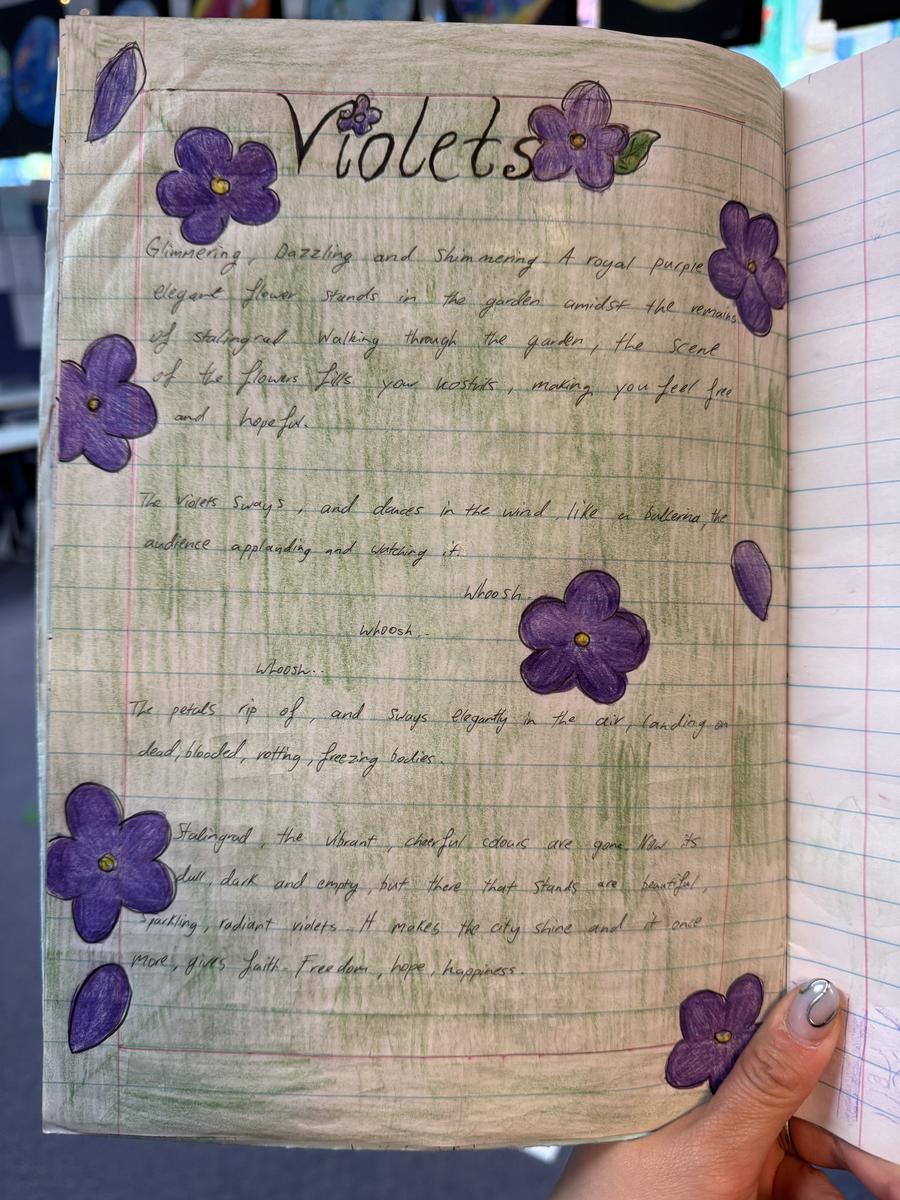 Violets
Glimmering, Dazzling and Shimmering. A royal purple
elegant flower stands in the garden amidst the remains
of stalingrad. Walking through the garden, the scene
of the flowers fills your nostrils, making you feel free
and hopeful.
The violets sways, and dances in the wind, like a ballerina, the
audience applauding and watching it.
Whoosh..
Whoosh..
Whoosh..
The petals rip of, and sways elegantly in the air, landing on
dead, blooded, rotting, freezing bodies.
Stalingrad, the vibrant, cheerful colours are gone. Now its
dull, dark and empty, but there that stands are beautiful,
sparkling, radiant violets. It makes the city shine and it once
more, gives faith. Freedom, hope, happiness.